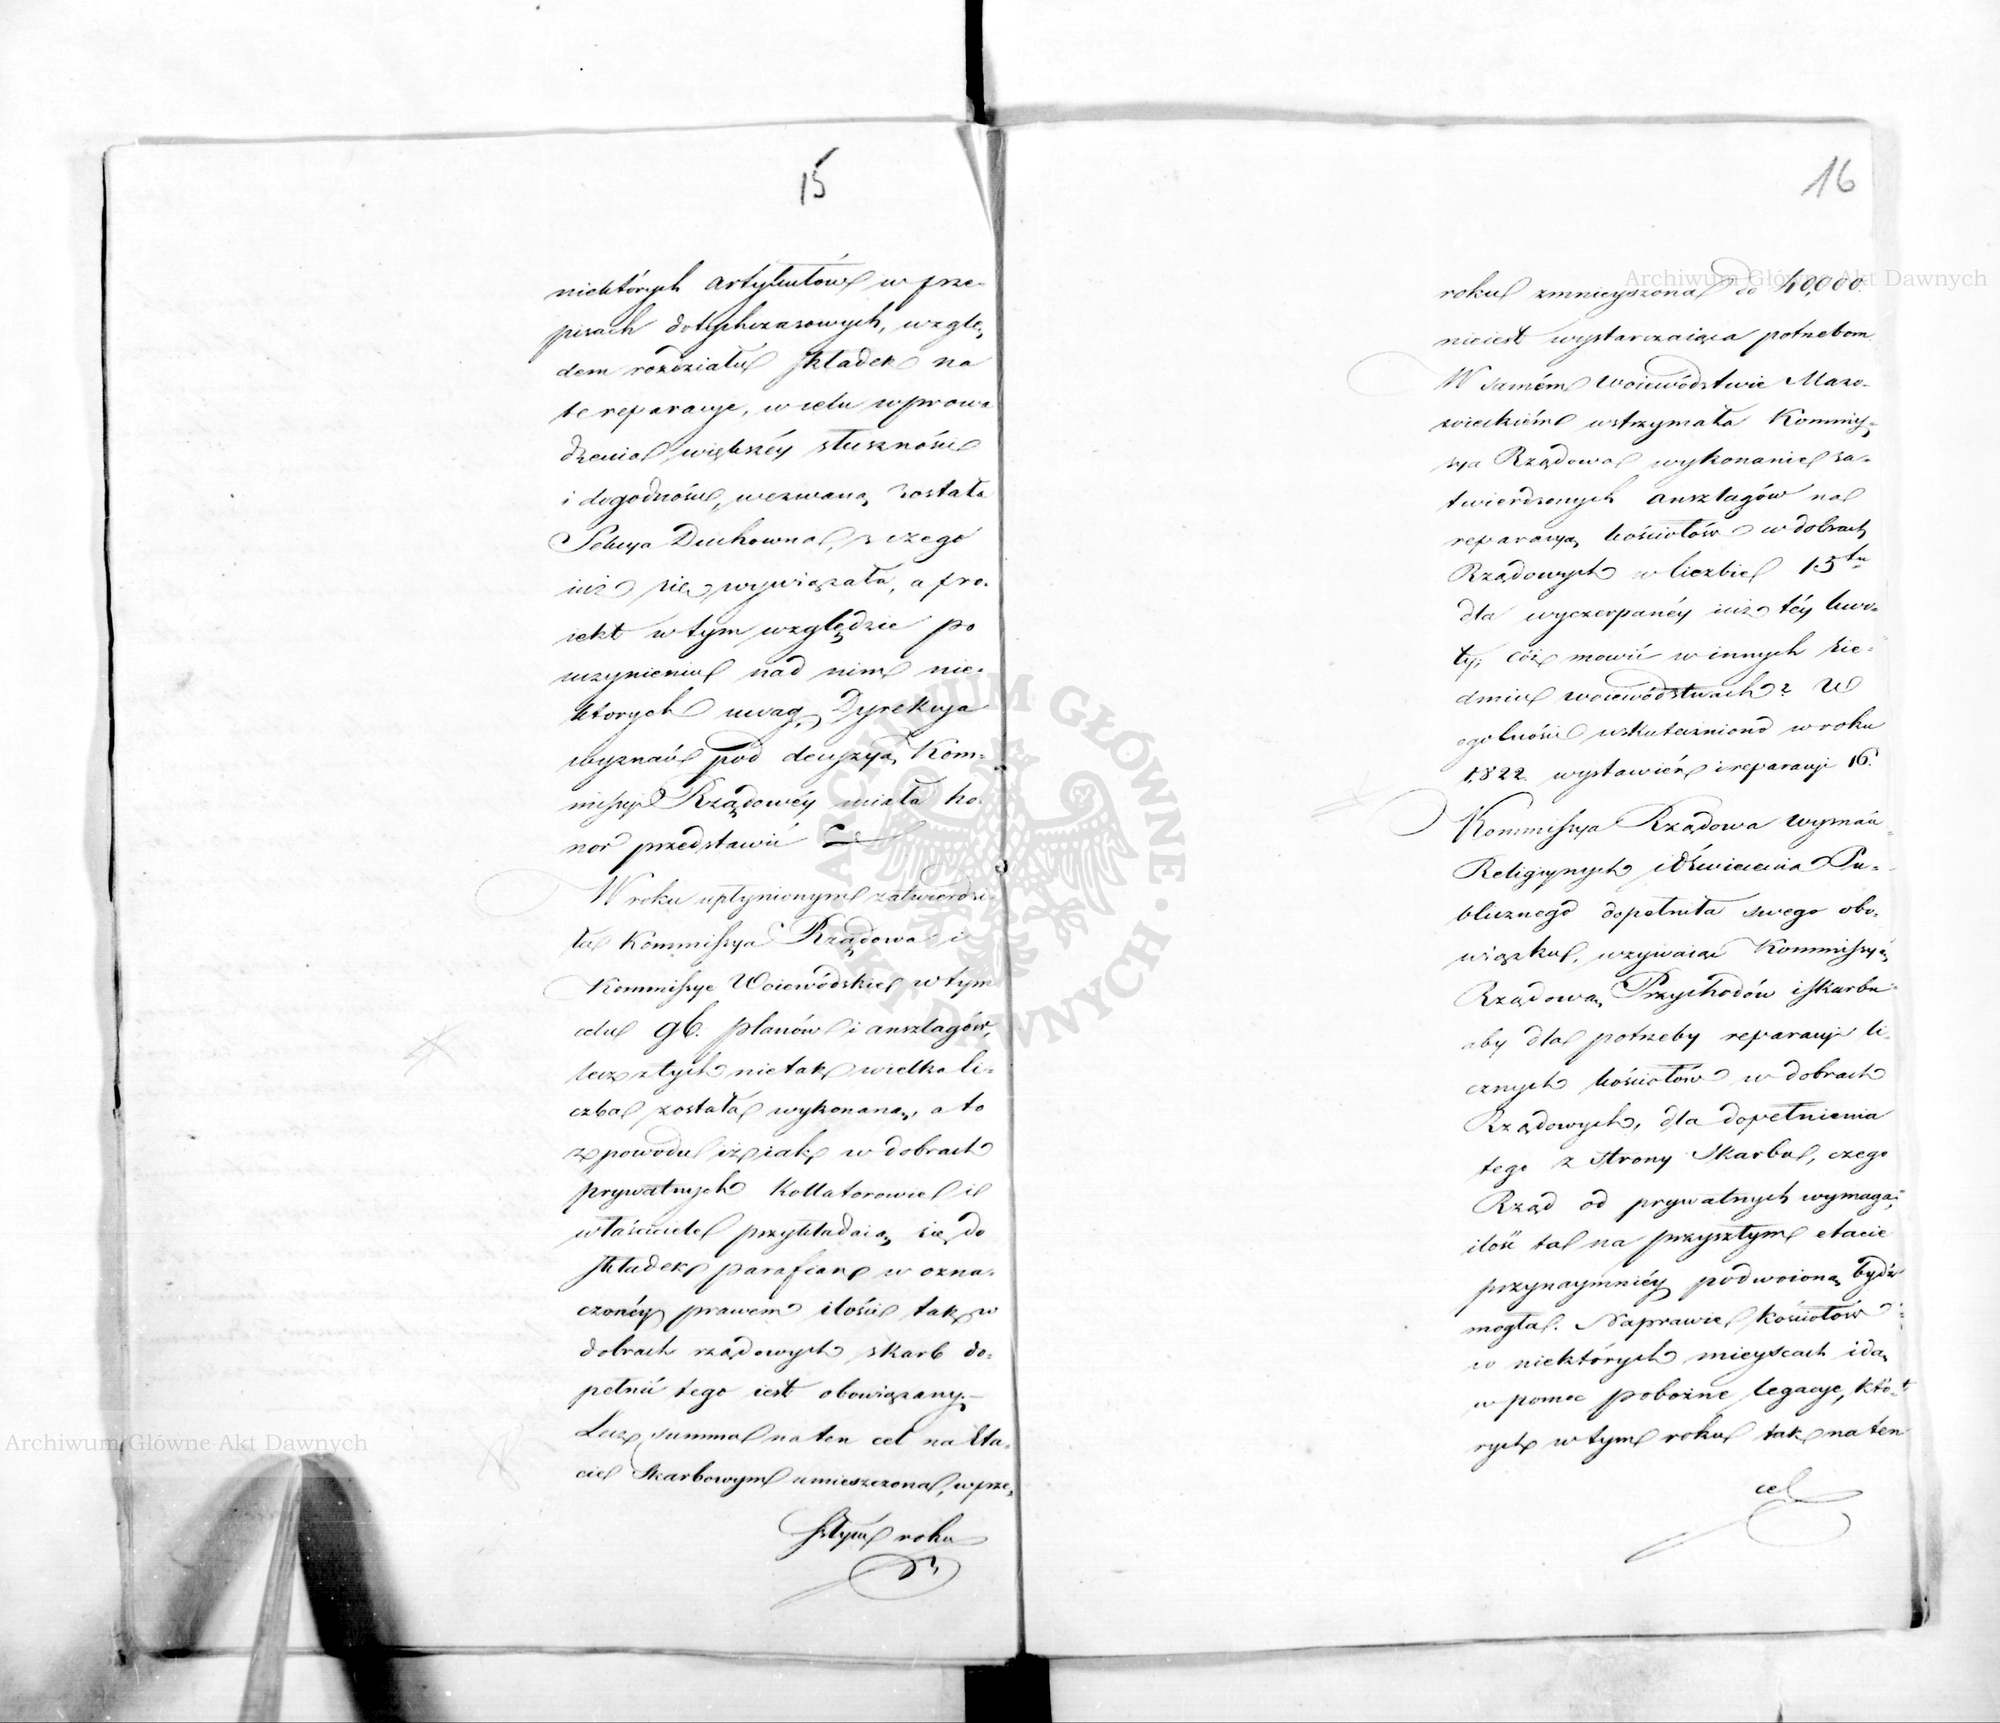 15
niektórych artykułów w prze-
pisach dotychczasowych, wzglę-
dem rozdziału składek na
te reparacye, w celu wprowa
dzenia większéy słuszności
i dogodności, wezwaną została
Sekcya Duchowna, z czego
iuż się wywiązała, a pro-
iekt w tym względzie po
uczynieniu nad nim nie-
ktorych uwag, Dyrekcya
wyznań pod decyzyą Kom-
missyi Rządowéy miała ho-
nor przedstawić
W roku upłynionym zatwierdzi-
ła Kommissya Rządowa i
Kommissye Woiewódskie w tym
celu 96. planów i anszlagów,
lecz z tych nie tak wielka li-
czba została wykonaną, a to
z powodu iż iak w dobrach
prywatnych Kollatorowie i
właściciele przykładaią się do
składek parafian w ozna-
czonéy prawem ilości tak w
dobrach rządowych skarb do-
pełnić tego iest obowiązany.-
Lecz summa na ten cel na Eta-
cie Skarbowym umieszczona, w prze-
szłym roku
16
roku zmnieyszona do 40,000.
nieiest wystarczaiąca potrzebom
W samém Woiewództwie Mazo-
wieckiém wstrzymała Kommis-
sya Rządowa wykonanie za-
twierdzonych anszlagów na
reparacyą kościołów w dobrach
Rządowych w liczbie 15tu
dla wyczerpanéy iuż téy kwo-
ty; cóż mowić w innych sie-
dmiu woiewództwach? W
ogolności uskuteczniono w roku
1822. wystawień i reparacyi 16.
Kommissya Rządowa Wyznań
Religiynych i Oświecenia Pu-
blicznego dopełniła swego obo-
wiązku, wzywaiąc Kommissyą
Rządową Przychodów i Skarbu
aby dla potrzeby reparacyi li-
cznych kościołów w dobrach
Rządowych, dla dopełnienia
tego z strony Skarbu, czego
Rząd od prywatnych wymaga,
ilość ta na przyszłym etacie
przynaymniéy podwoioną bydź
mogła. Naprawie kościołów
w niektórych mieyscach idą
w pomoc pobożne legacye, któ-
rych w tym roku tak na ten
cel
Archiwum Główne Akt Dawnych
Archiwum Główne Akt Dawnych
ARCHIWUM GŁÓWNE AKT DAWNYCH